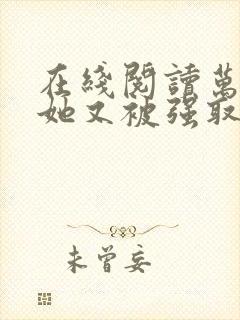 在綫閱讀萬
她又被强取
未曾妄